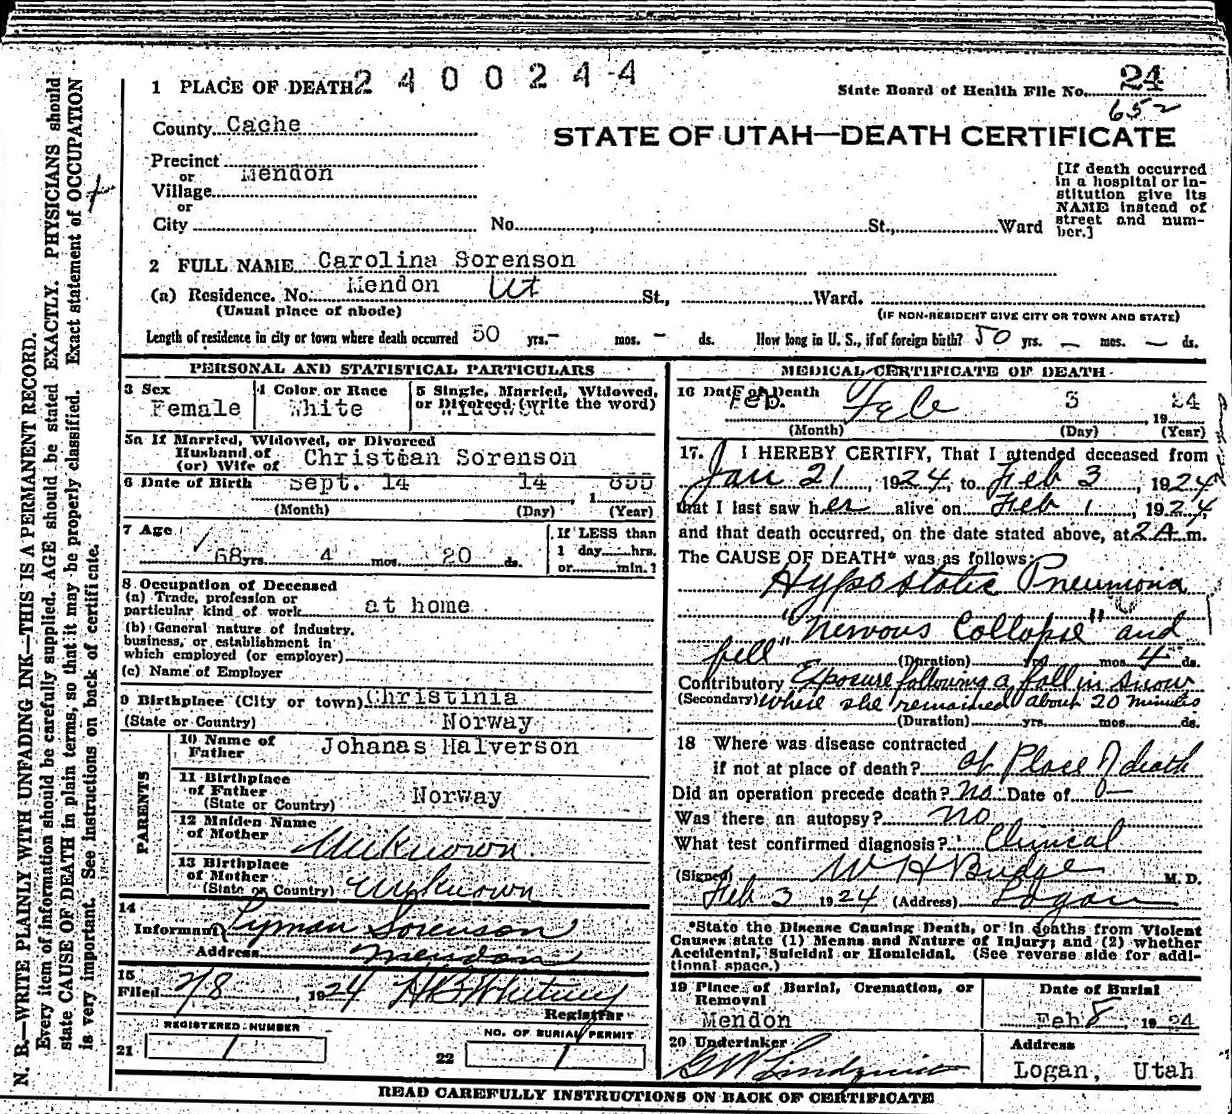 1 PLACE OF DEATH 2 4 0 0 2 4 4
State Board of Health File No. 24
652
County Cache
STATE OF UTAH—DEATH CERTIFICATE
Precinct
or Mendon
Village
or
City No. St., Ward
[If death occurred
in a hospital or in-
stitution give its
NAME instead of
street and num-
ber.]
2 FULL NAME Carolina Sorenson
(a) Residence. No. Mendon Ut St., Ward.
(Usual place of abode) (IF NON-RESIDENT GIVE CITY OR TOWN AND STATE)
Length of residence in city or town where death occurred 50 yrs. — mos. — ds. How long in U. S., if of foreign birth? 50 yrs. — mos. — ds.
PERSONAL AND STATISTICAL PARTICULARS
3 Sex 4 Color or Race 5 Single, Married, Widowed,
or Divorced (write the word)
Female White Widowed
5a If Married, Widowed, or Divorced
Husband of
(or) Wife of Christian Sorenson
6 Date of Birth Sept. 14 14, 1855
(Month) (Day) (Year)
7 Age If LESS than
68 yrs. 4 mos. 20 ds. 1 day hrs.
or min.?
8 Occupation of Deceased
(a) Trade, profession or
particular kind of work at home
(b) General nature of industry,
business, or establishment in
which employed (or employer)
(c) Name of Employer
9 Birthplace (City or town) Christinia
(State or Country) Norway
PARENTS
10 Name of
Father Johanas Halverson
11 Birthplace
of Father
(State or Country) Norway
12 Maiden Name
of Mother Unknown
13 Birthplace
of Mother
(State or Country) Unknown
14
Informant Lyman Sorenson
Address Mendon
15
Filed 2/8, 1924 H B Whitney
Registrar
REGISTERED NUMBER NO. OF BURIAL PERMIT
21 1 22 1
MEDICAL CERTIFICATE OF DEATH
16 Date of Death
Feb. Feb 3 1924
(Month) (Day) (Year)
17. I HEREBY CERTIFY, That I attended deceased from
Jan 21, 1924, to Feb 3, 1924
that I last saw her alive on Feb 1, 1924,
and that death occurred, on the date stated above, at 2 A m.
The CAUSE OF DEATH* was as follows:
Hypostatic Pneumonia
"nervous Collapse" and
fell"
(Duration) yrs. mos. 4 ds.
Contributory Exposure following a fall in snow
(Secondary) where she remained about 20 minutes
(Duration) yrs. mos. ds.
18 Where was disease contracted
if not at place of death? at Place of death
Did an operation precede death? No. Date of 0—
Was there an autopsy? No
What test confirmed diagnosis? Clinical
(Signed) W H Budge M. D.
Feb 3 1924 (Address) Logan
*State the Disease Causing Death, or in deaths from Violent
Causes state (1) Means and Nature of Injury; and (2) whether
Accidental, Suicidal or Homicidal. (See reverse side for addi-
tional space.)
19 Place of Burial, Cremation, or
Removal
Mendon
Date of Burial
Feb 8, 1924
20 Undertaker Address
G W Lindquist Logan, Utah
READ CAREFULLY INSTRUCTIONS ON BACK OF CERTIFICATE
N. B.—WRITE PLAINLY WITH UNFADING INK—THIS IS A PERMANENT RECORD.
Every item of information should be carefully supplied. AGE should be stated EXACTLY. PHYSICIANS should
state CAUSE OF DEATH in plain terms, so that it may be properly classified. Exact statement of OCCUPATION
is very important. See instructions on back of certificate.